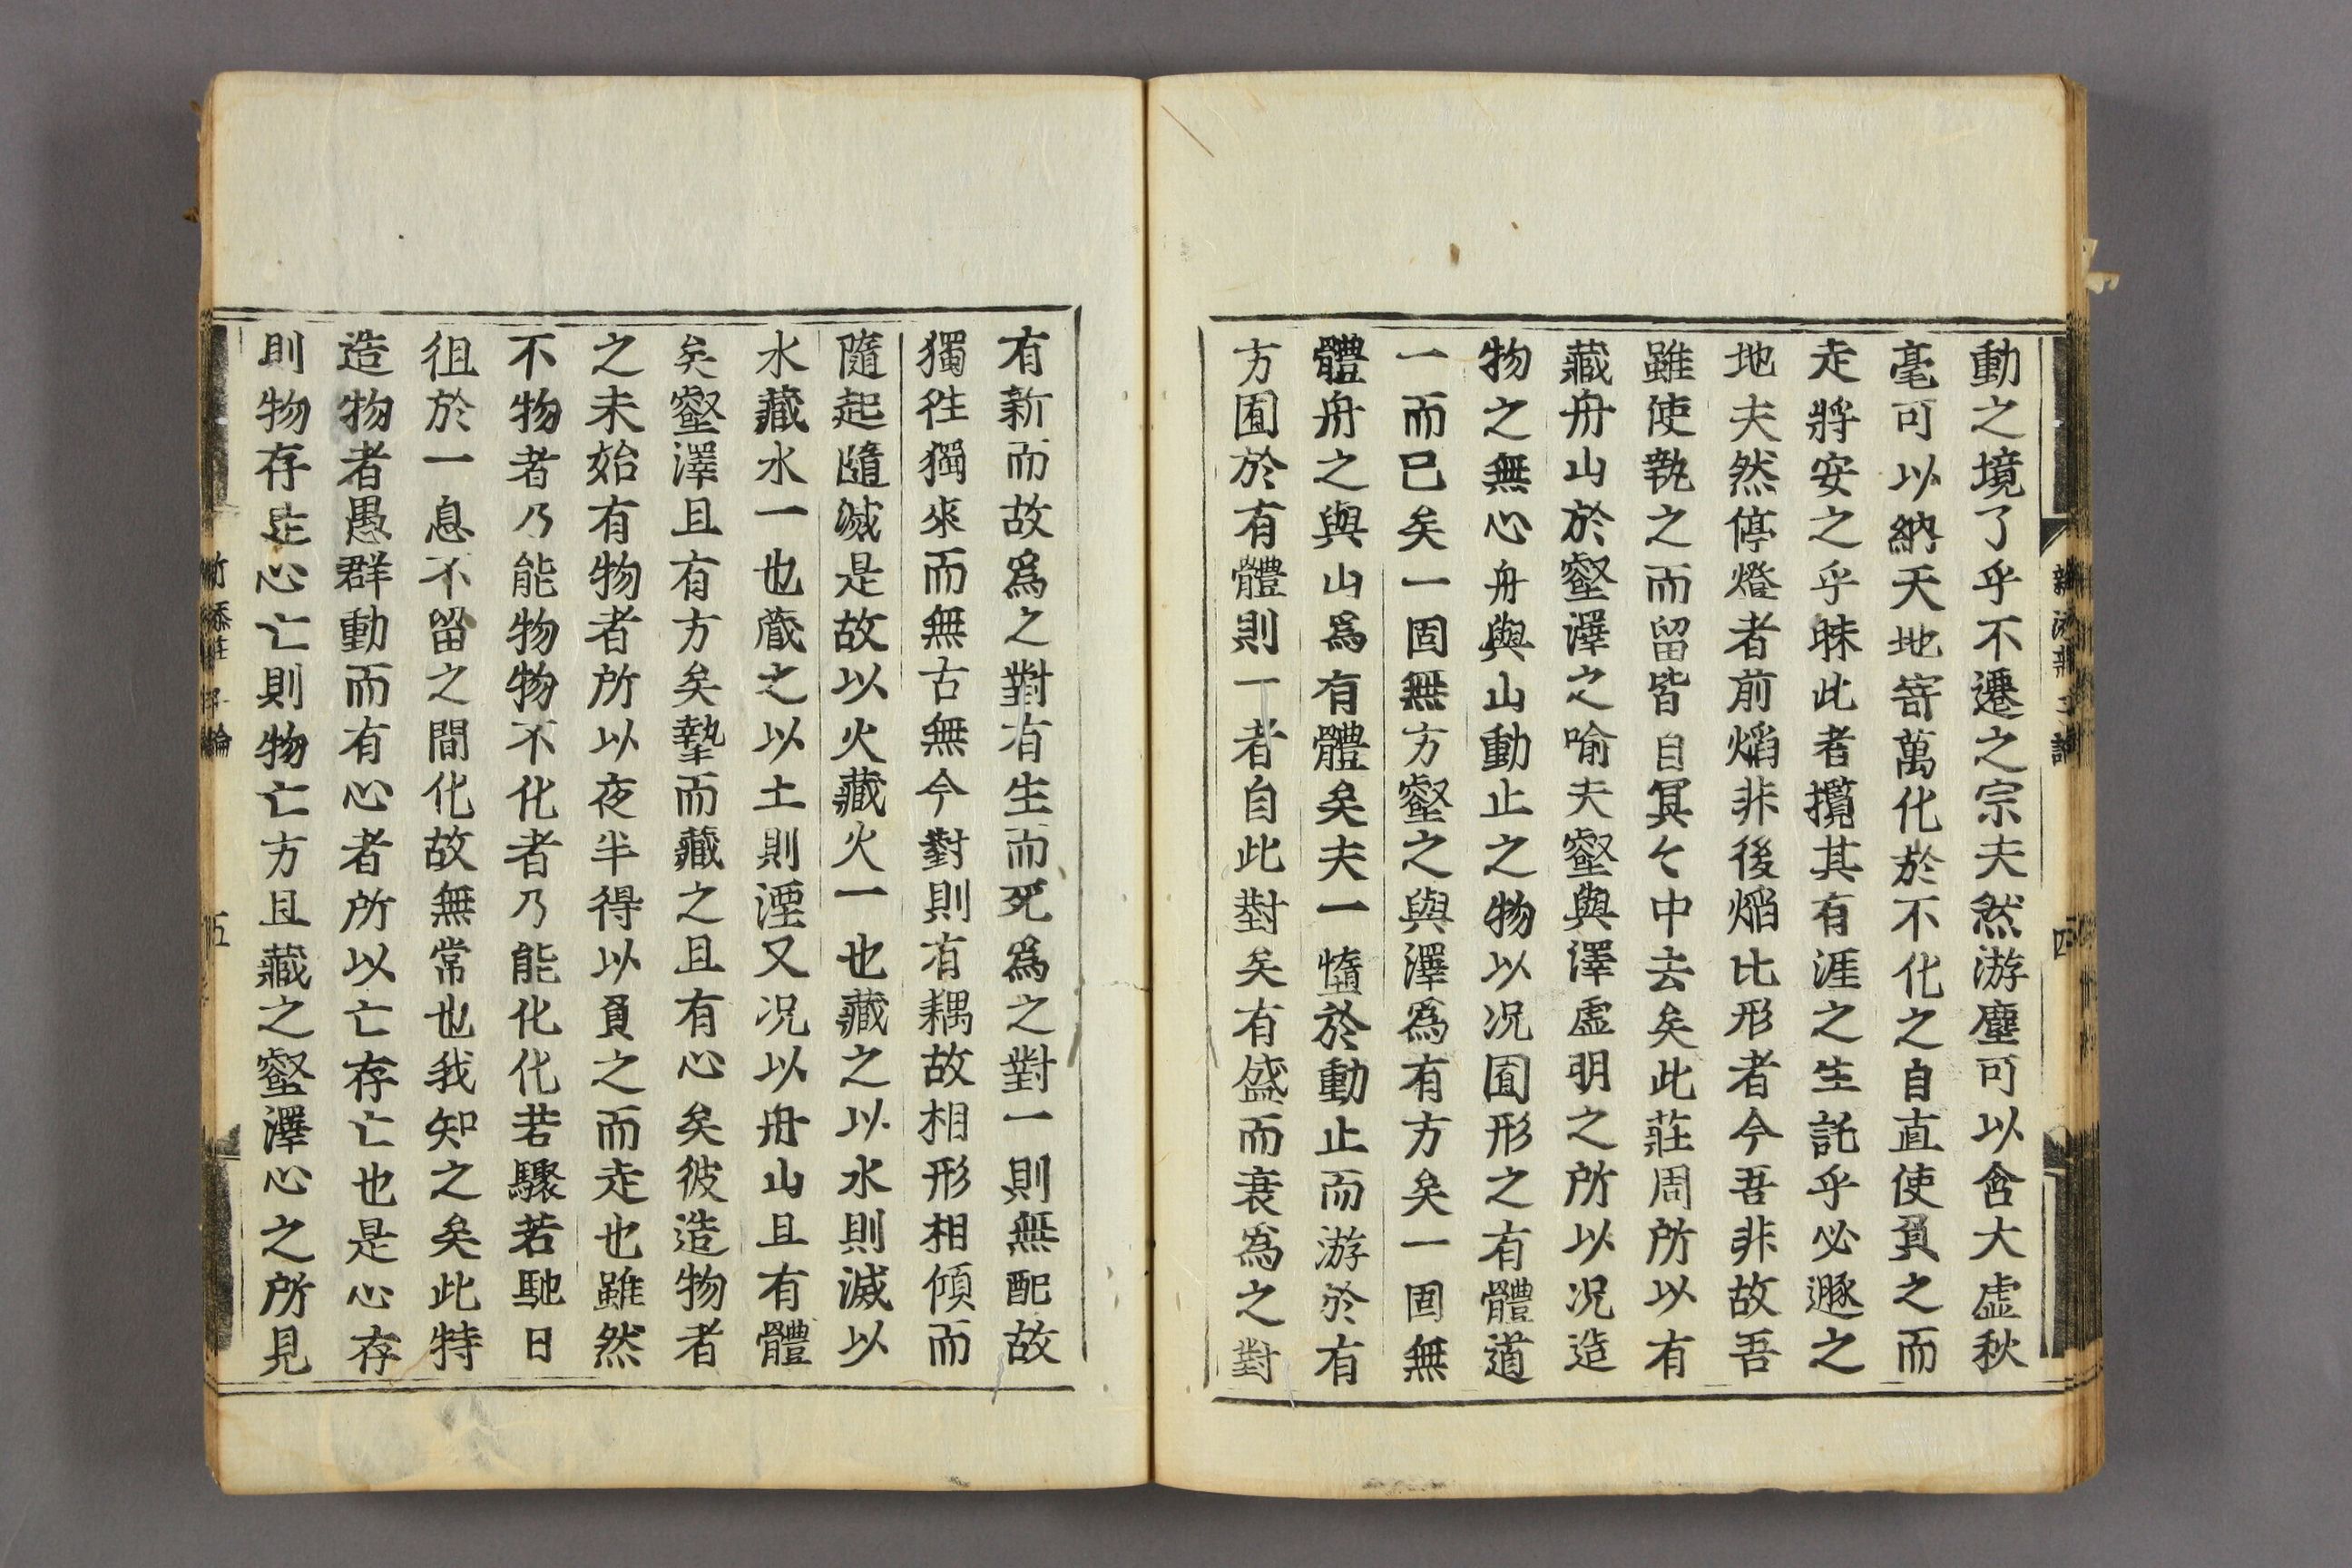 動之境了乎不遷之宗夫然游塵可以含大虛秋
毫可以納天地寄萬化於不化之自直使負之而
走將安之乎昧此者攬其有涯之生託乎必遯之
地夫然停燈者前熖非後熖比形者今吾非故吾
雖使執之而留皆自冥々中去矣此莊周所以有
藏舟山於壑澤之喻夫壑與澤虛明之所以况造
物之無心舟與山動止之物以况囿形之有體道
一而已矣一固無方壑之與澤爲有方矣一固無
體舟之與山爲有體矣夫一墮於動止而游於有
方囿於有體則一者自此對矣有盛而衰爲之對
有新而故爲之對有生而死爲之對一則無配故
獨徃獨來而無古無今對則有耦故相形相傾而
隨起隨滅是故以火藏火一也藏之以水則滅以
水藏水一也藏之以土則湮又况以舟山且有體
矣壑澤且有方矣摯而藏之且有心矣彼造物者
之未始有物者所以夜半得以負之而走也雖然
不物者乃能物物不化者乃能化化若驟若馳日
徂於一息不留之間化故無常也我知之矣此特
造物者愚群動而有心者所以亡存亡也是心存
則物存是心亡則物亡方且藏之壑澤心之所見
四
五